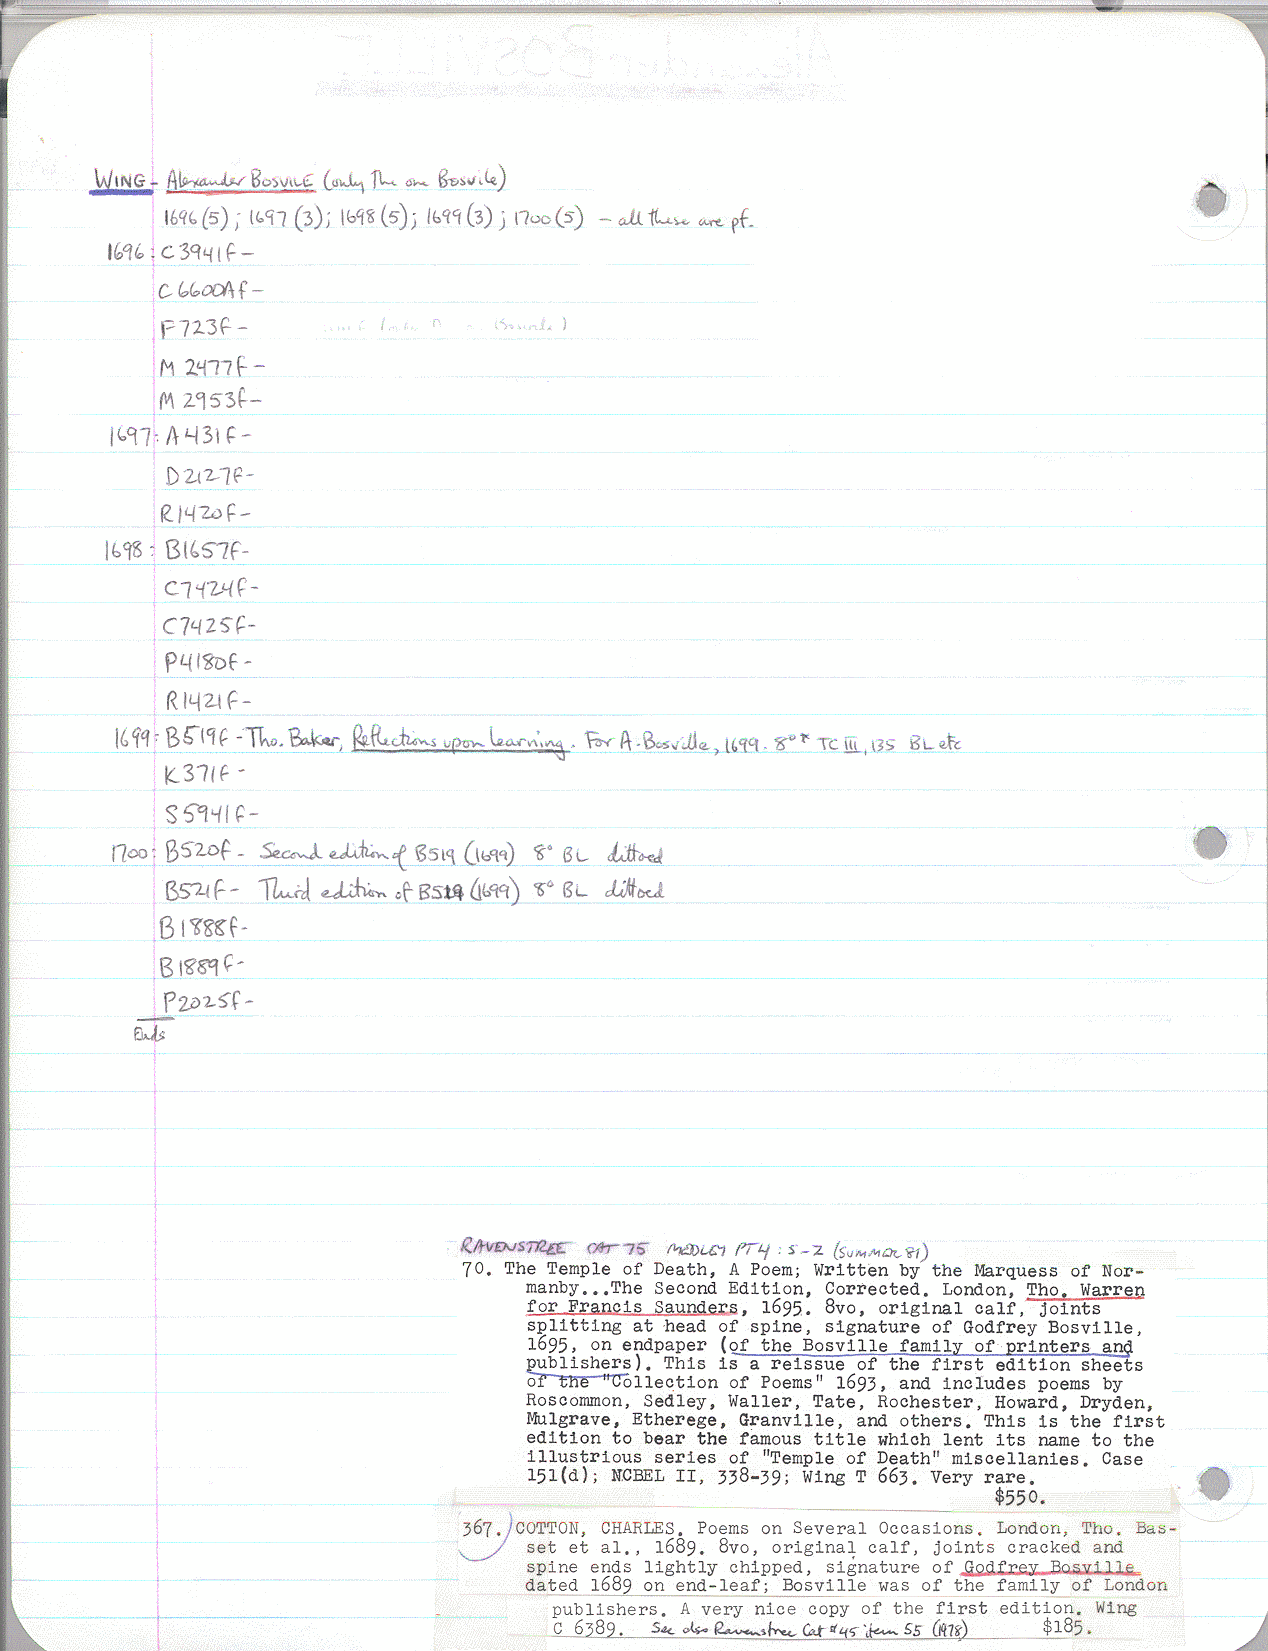 WING - Alexander BOSVILE (only the one Bosvile)
1696 (5); 1697 (3); 1698 (5); 1699 (3); 1700 (5) - all these are pf.
1696: C 3941f -
C 6600Af -
F 723f -
M 2477f -
M 2953f -
1697: A 431f -
D2127f -
R1420f -
1698: B1657f -
C7424f -
C7425f -
P4180f -
R1421f -
1699: B519f - Tho. Baker, Reflections upon learning. For A. Bosville, 1699. 8°* TC III, 135 BL etc
K371f -
S5941f -
1700: B520f - Second edition of B519 (1699) 8° BL dittoed
B521f - Third edition of B519 (1699) 8° BL dittoed
B1888f -
B1889f -
P2025f -
Ends
RAVENSTREE CAT 75 MEDLEY PT 4: S-Z (SUMMER 81)
70. The Temple of Death, A Poem; Written by the Marquess of Nor-
manby...The Second Edition, Corrected. London, Tho. Warren
for Francis Saunders, 1695. 8vo, original calf, joints
splitting at head of spine, signature of Godfrey Bosville,
1695, on endpaper (of the Bosville family of printers and
publishers). This is a reissue of the first edition sheets
of the "Collection of Poems" 1693, and includes poems by
Roscommon, Sedley, Waller, Tate, Rochester, Howard, Dryden,
Mulgrave, Etherege, Granville, and others. This is the first
edition to bear the famous title which lent its name to the
illustrious series of "Temple of Death" miscellanies. Case
151(d); NCBEL II, 338-39; Wing T 663. Very rare.
$550.
367. COTTON, CHARLES. Poems on Several Occasions. London, Tho. Bas-
set et al., 1689. 8vo, original calf, joints cracked and
spine ends lightly chipped, signature of Godfrey Bosville
dated 1689 on end-leaf; Bosville was of the family of London
publishers. A very nice copy of the first edition. Wing
C 6389. See also Ravenstree Cat #45 item 55 (1978) $185.